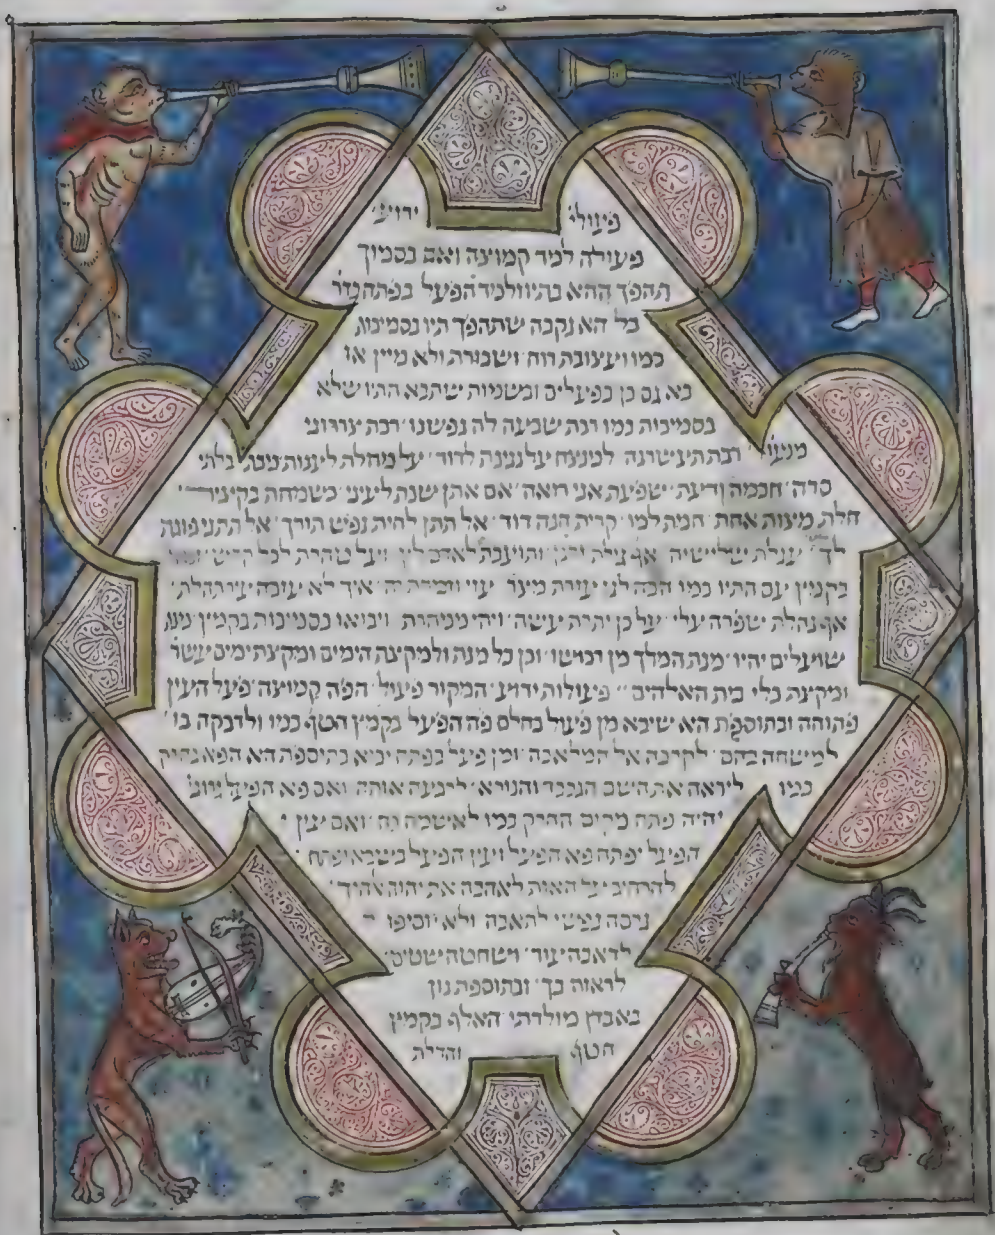 פעולי ידוע
פעולה למד קמוצה ואם בסמוך
תהפך ההא בתיו ולמד הפעל בפתח גדו
כל הא נקבה שתהפך תיו בסמיכות
כמו ועצובת רוח ושכורת ולא מיין או
בא גם כן בפעלים ובשמות שתבא התיו שלא
בסמיכות כמו רבת שבעה לה נפשנו רבת צררוני
מנעו רבת תעשרנה למנצח על נגינת לדוד על מחלת לענות מכת בלתי
סרה חכמה ודעת שפעת אני רואה אם אתן שנת לעיני כשמחת בקציר
חלת מצות אחת חמת למו קרית חנה דוד אל תתן לחית נפש תורך אל התניפונה
עגלת שלישיה לכל קדש
בקמץ עם התיו כמו הבה לנו עזרת מצר עזי וזמרת יה איך לא עזבה עיר תהלת
אף נחלת שפרה עלי על כן יתרת עשה ויהי ויבואו בסמיכות בקמץ מנת
שועלים יהיו מנת המלך מן רכושו וכן כל מנת ולמקצת הימים ומקצת ימים עשר
ומקצת כלי בית האלהים פעולות ידוע המקור פעול הפה קמוצה פעל העין
פתוחה ובתוספת הא שיבא מן פעול בחלם פה הפעל בקמץ חטף כמו ולדבקה בו
למשחה בהם לקרבה אל המלאכה ומן פעל בפתח יבא בתוספת הא הפא בחירק
כמו ליראה את השם הנכבד והנורא לרבעה אותה ואם פא הפעל גרונ
יהיה פתח מקום החרק כמו לאשמה בה ואם עין
הפעל יפתח פא הפעל ועין הפעל בשבא ופתח
להרחיב על האות לאהבה את יהוה אלהיך
גרסה נפשי לתאבה ולא יוסיפו
לדאבה עוד ושחטה שטים
לראוה בך ובתוספת נון
באבדן מולדתי האלף בקמץ
חטף והדלת